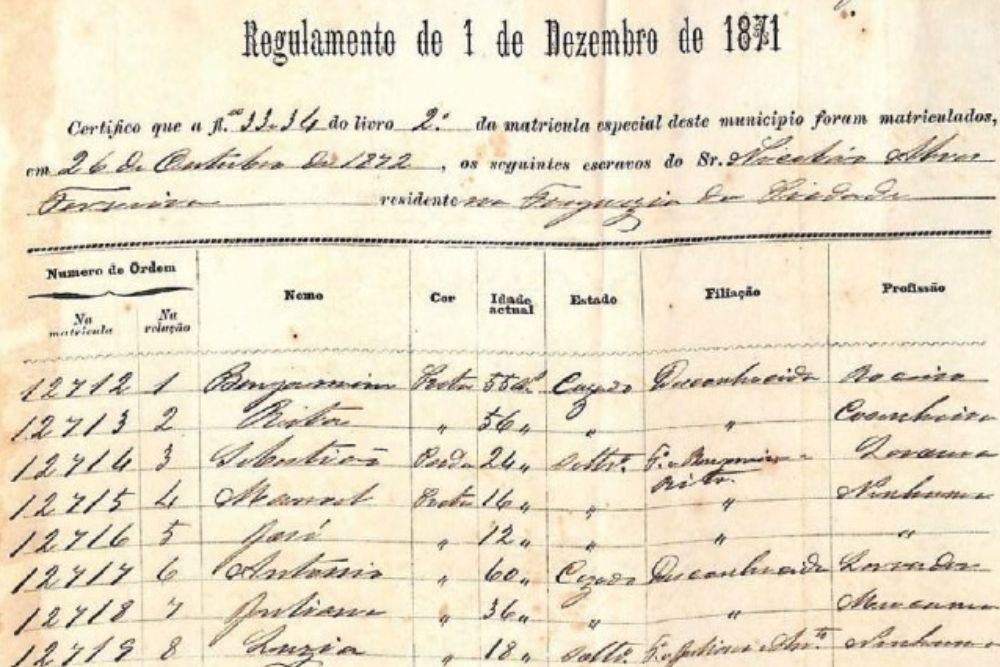 Regulamento de 1 de Dezembro de 1871
Certifico que a fl.as 33.34 do livro 2.º da matricula especial deste municipio foram matriculados,
em 26 de Outubro de 1872, os seguintes escravos do Sr. Nicoláo Alves
Ferreira residente na Freguezia da Piedade
Numero de Ordem
Na matricula Na relação Nome Cor Idade actual Estado Filiação Profissão
12712 1 Benjamim Preta 55 Cazado Desconhecida Roceiro
12713 2 Rita " 56 " " " Cosinheira
12714 3 Sebastião Parda 24 " Soltr.º F. Benjamim e Rita
12715 4 Manoel Preta 16 " " " Nenhuma
12716 5 José " 12 " " " "
12717 6 Antônio " 60 " Cazado Desconhecida Lavrador
12718 7 Juliana " 36 " " " Mucama
12719 8 Luzia " 18 " Soltr.ª F. Juliana e Ant.º Nenhuma